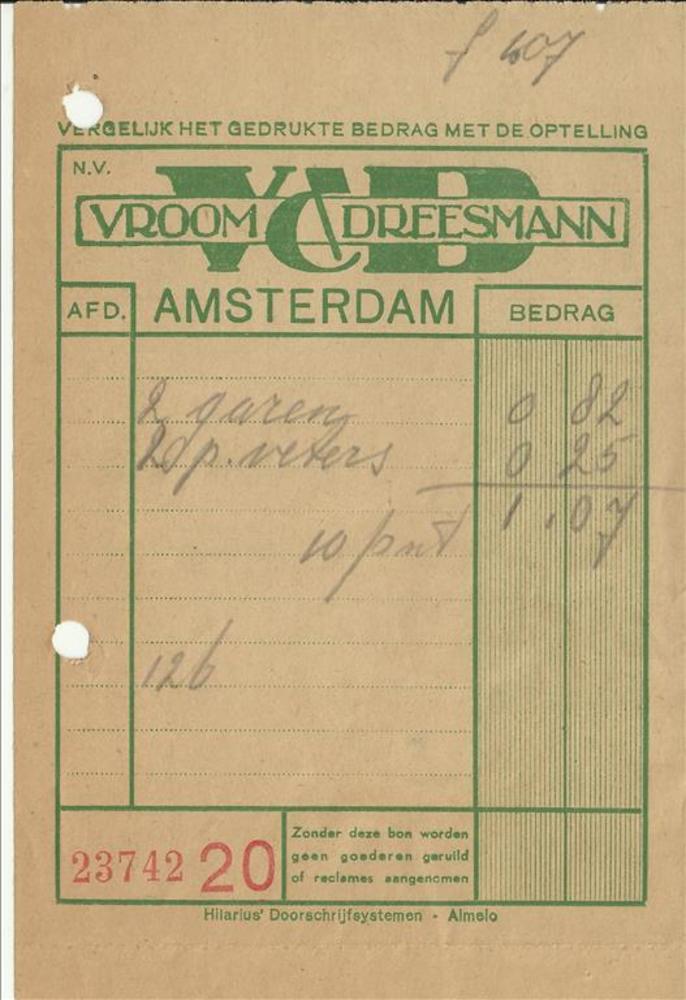 f 407
VERGELIJK HET GEDRUKTE BEDRAG MET DE OPTELLING
N.V.
V&D
VROOM & DREESMANN
AFD. AMSTERDAM BEDRAG
2 garen 0 82
2 p. veters 0 25
1.07
10 pnt
126
23742 20
Zonder deze bon worden
geen goederen geruild
of reclames aangenomen
Hilarius' Doorschrijfsystemen - Almelo